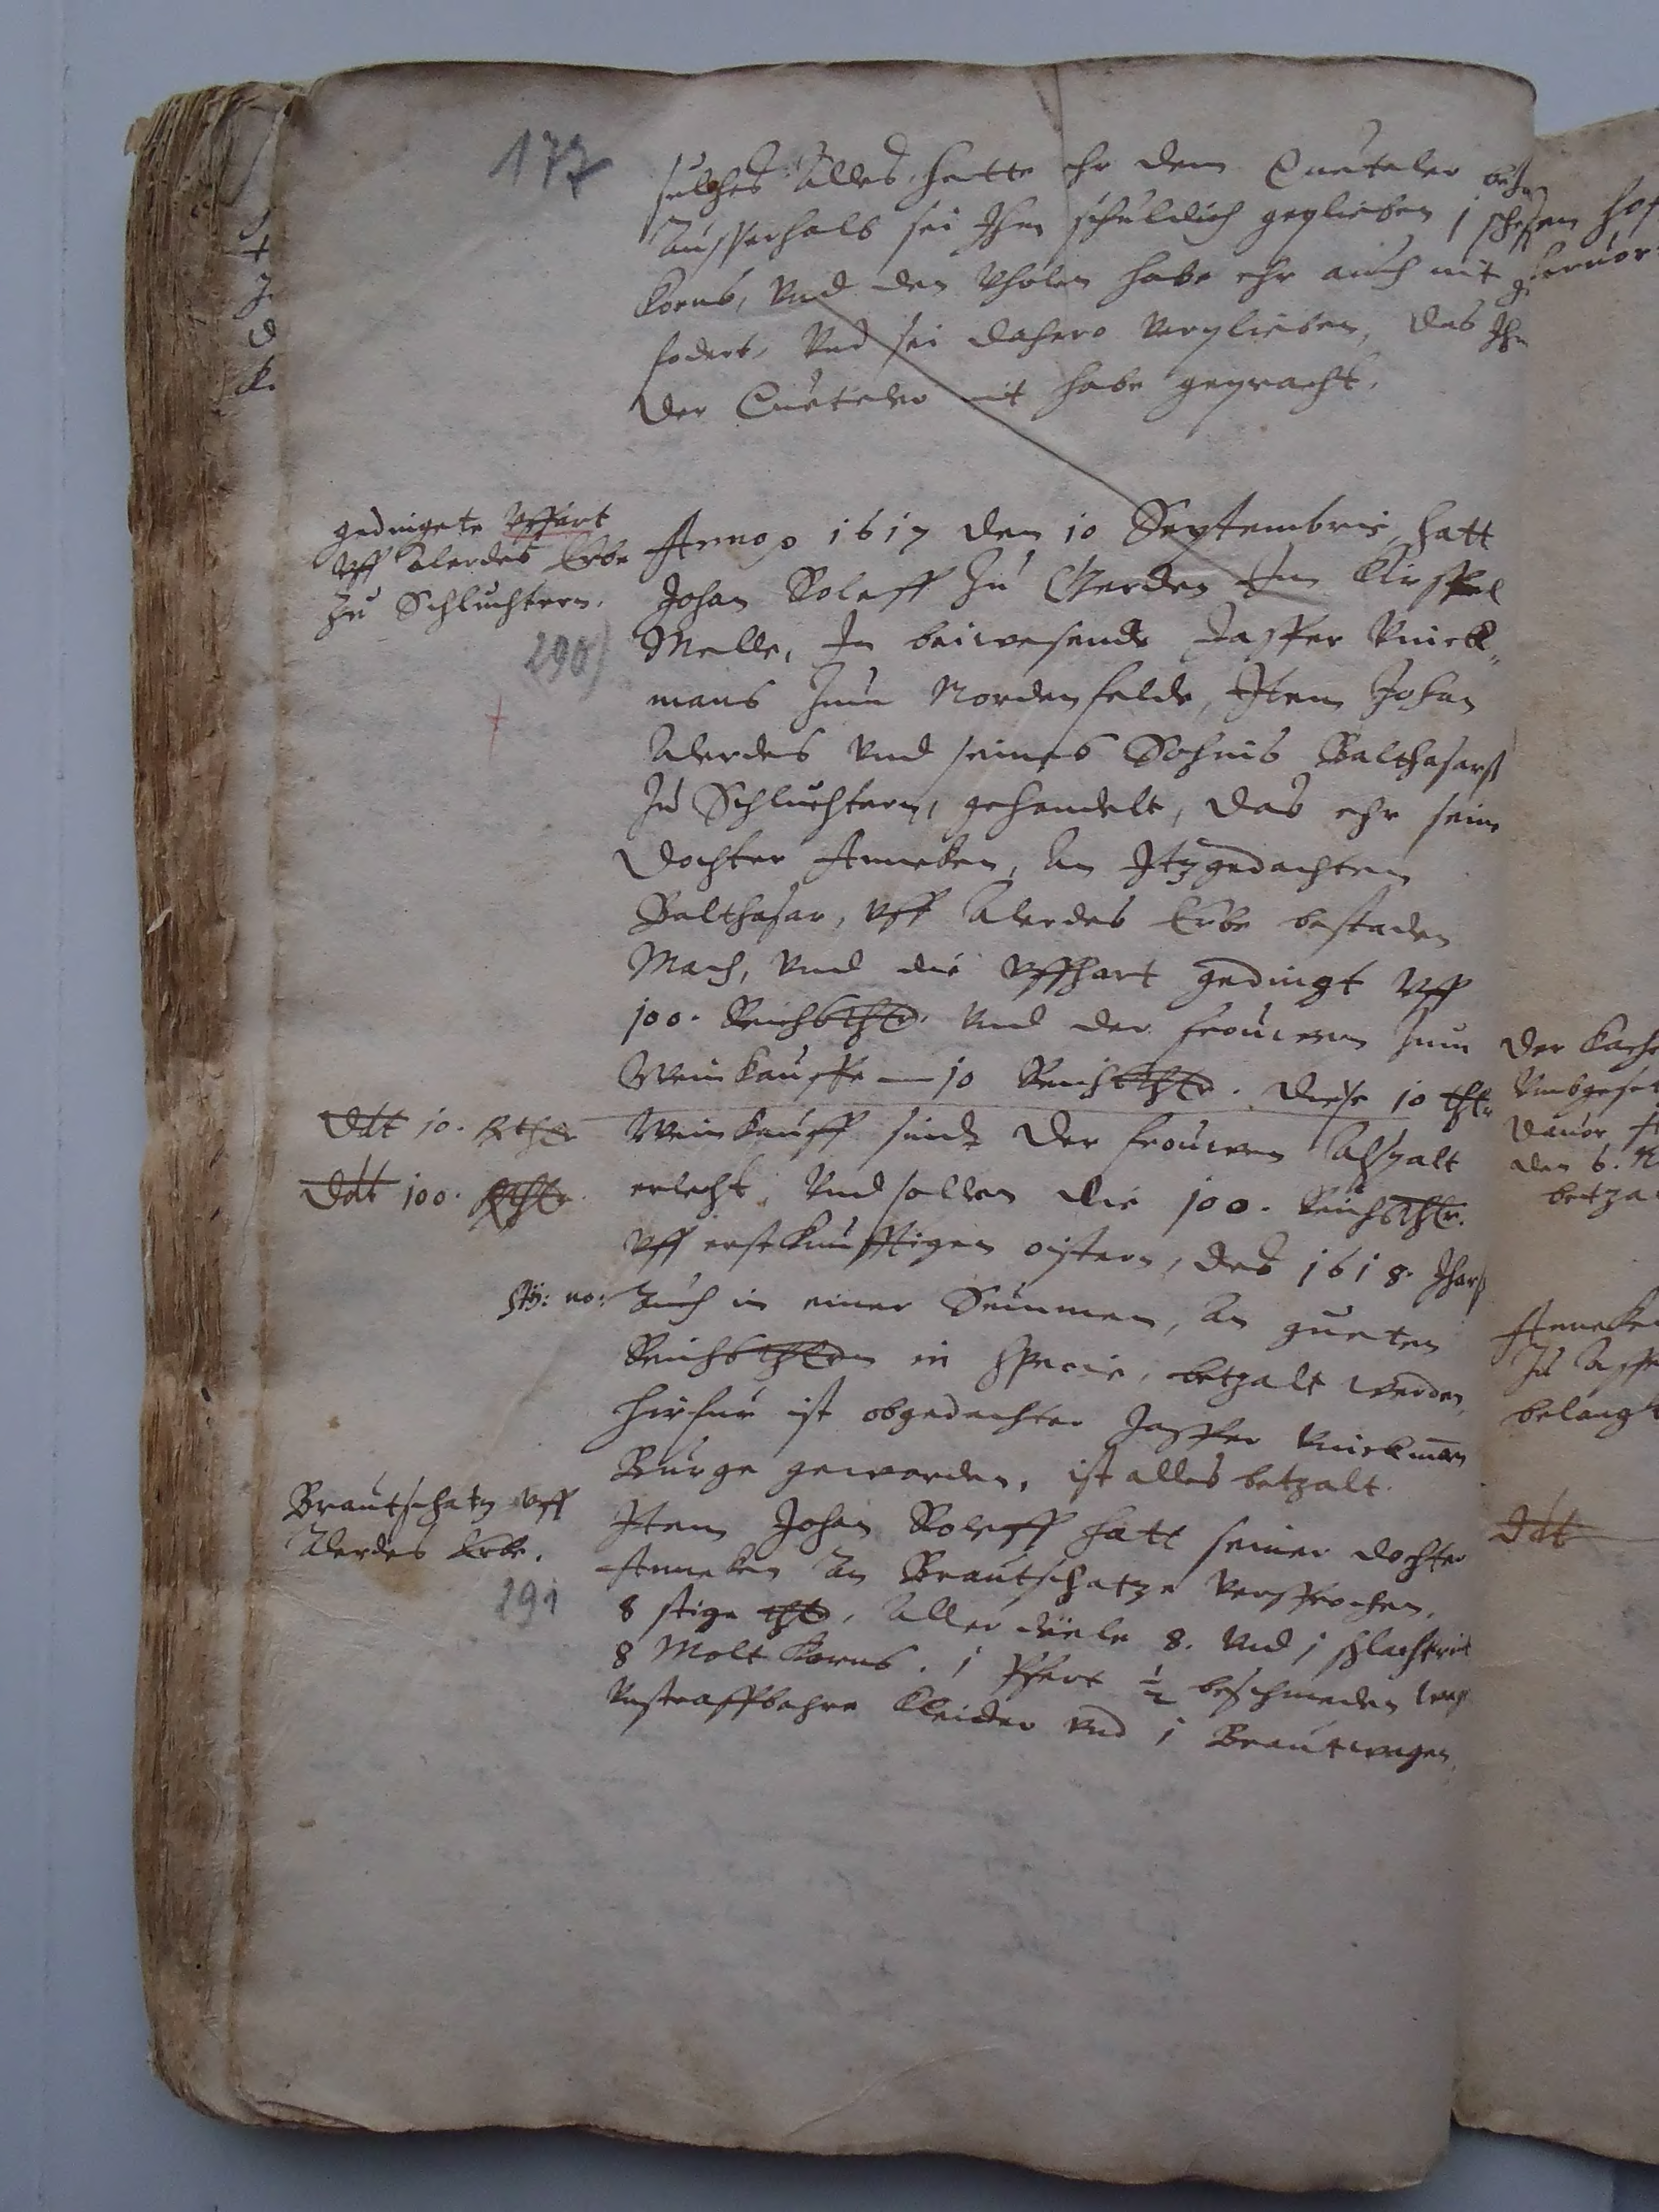 177
sulches Alles hette ehr dem Cueteler
Ausserhalb sei Ihm schuldich geplieben 1 schepen
Korns, Vnd den habe ehr auch nit ge
fodert, Vnd sei dahero verplieben, das Ihn
der Cueteler nit habe gepracht.
gedingete Vffart
Vff Alerdes Erbe
Zu Schluchtern.
290
Anno 1617 den 10 Septembris, hatt
Johan Roleff Zu Gerden Im Kirspel
Melle, In beiwesende Jasper Knick„
mans Zum Nordenfelde, Item Johan
Alerdes Vnd seines Sohnis Balthasarß
Zu Schluchtern, gehandelt, das ehr seine
Dochter Anneken, An Itzgedachten
Balthasar, Vff Alerdes Erbe bestaden
Mach, Vnd die Vffhart gedingt Vff
100. Reichsthlr. Vnd der Frouwen Zum
Weinkauffe — 10 Reichsthlr. Diese 10 thlr
Weinkauff sindt der Frouwen Alspalt
erlecht, Vnd sollen die 100. Reichsthlr.
Vff erstkunfftigen oistern, des 1618. Jharß
Auch in einer Summen, An gueten
Reichsthlrn in Specie, betzalt werden,
Hirfur ist obgedachter Jasper Knickman
Burge geworden. ist alles betzalt.
Ddt 10. Rthlr
Ddt 100. Rthlr
Brautschatz Vff
Alerdes Erbe.
291
Item Johan Roleff hatt seiner Dochter
Anneken An Brautschatze Versprochen,
8 stige thlr, Aller diele 8. Vnd 1 schlachtrindt
8 Molt Korns. 1 Pfert ½ beschmeden
Vnstraffbahre Kleider Vnd 1 Brautwagen.